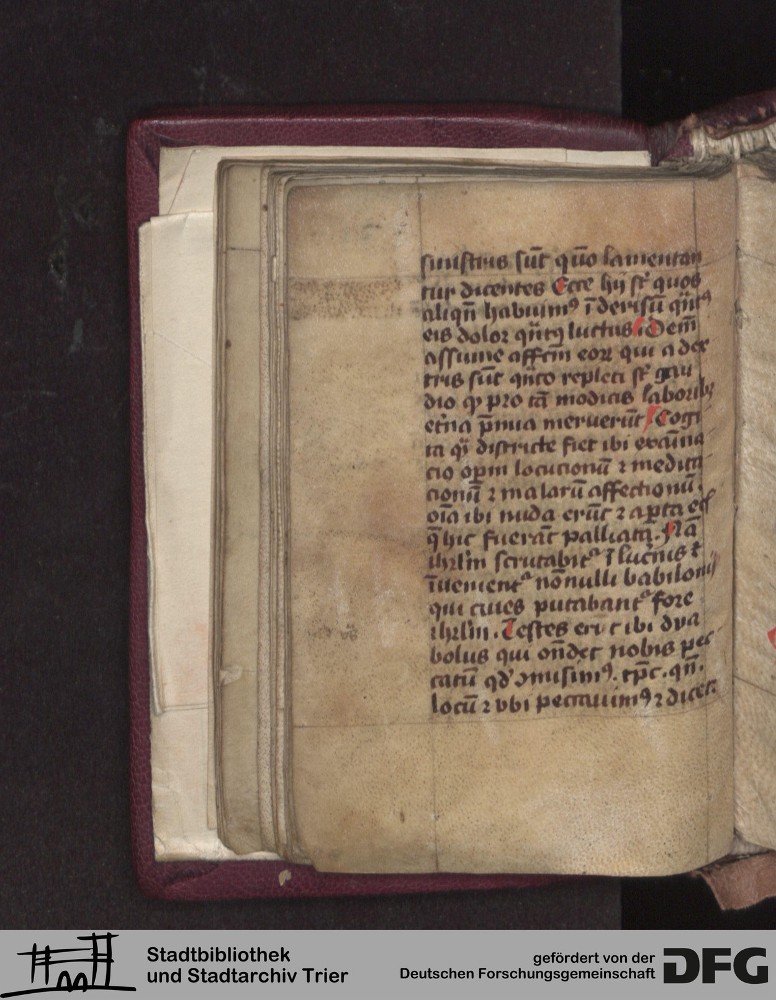 sinistris sūt quō lamentan
tur dicentes Ecce hij st quos
aliqñ habuimꝰ ī derisū qñtꝰ
eis dolor qñtꝰ luctus Dem̄
assume affcm̄ eoꝝ qui a dex
tris sūt qñto repleti st gau
dio qꝫ pro tā modicis laboribꝫ
etna p̄mia meruerūt Cogi
ta qꝫ districte fiet ibi exāına
cio opm̄ locucionū ⁊ medita
cionū ⁊ malarū affectionū.
oīa ibi nuda erūt ⁊ apta
q̄ hic fuerāt palliata. Nā
ihrlm̄ scrutabitᵘ ī lucn̄is ⁊
īuenientᵘ nōnulli babilonij
qui ciues putabantᵘ fore
ihrlm̄. Testes erūt ibi dya
bolus qui oñdet nobis pec
catū qd ꝯmisimꝰ. tp̄c. qñ.
locū ⁊ vbi peccauimꝰ ⁊ dicet
Stadtbibliothek
und Stadtarchiv Trier
gefördert von der
Deutschen Forschungsgemeinschaft
DFG